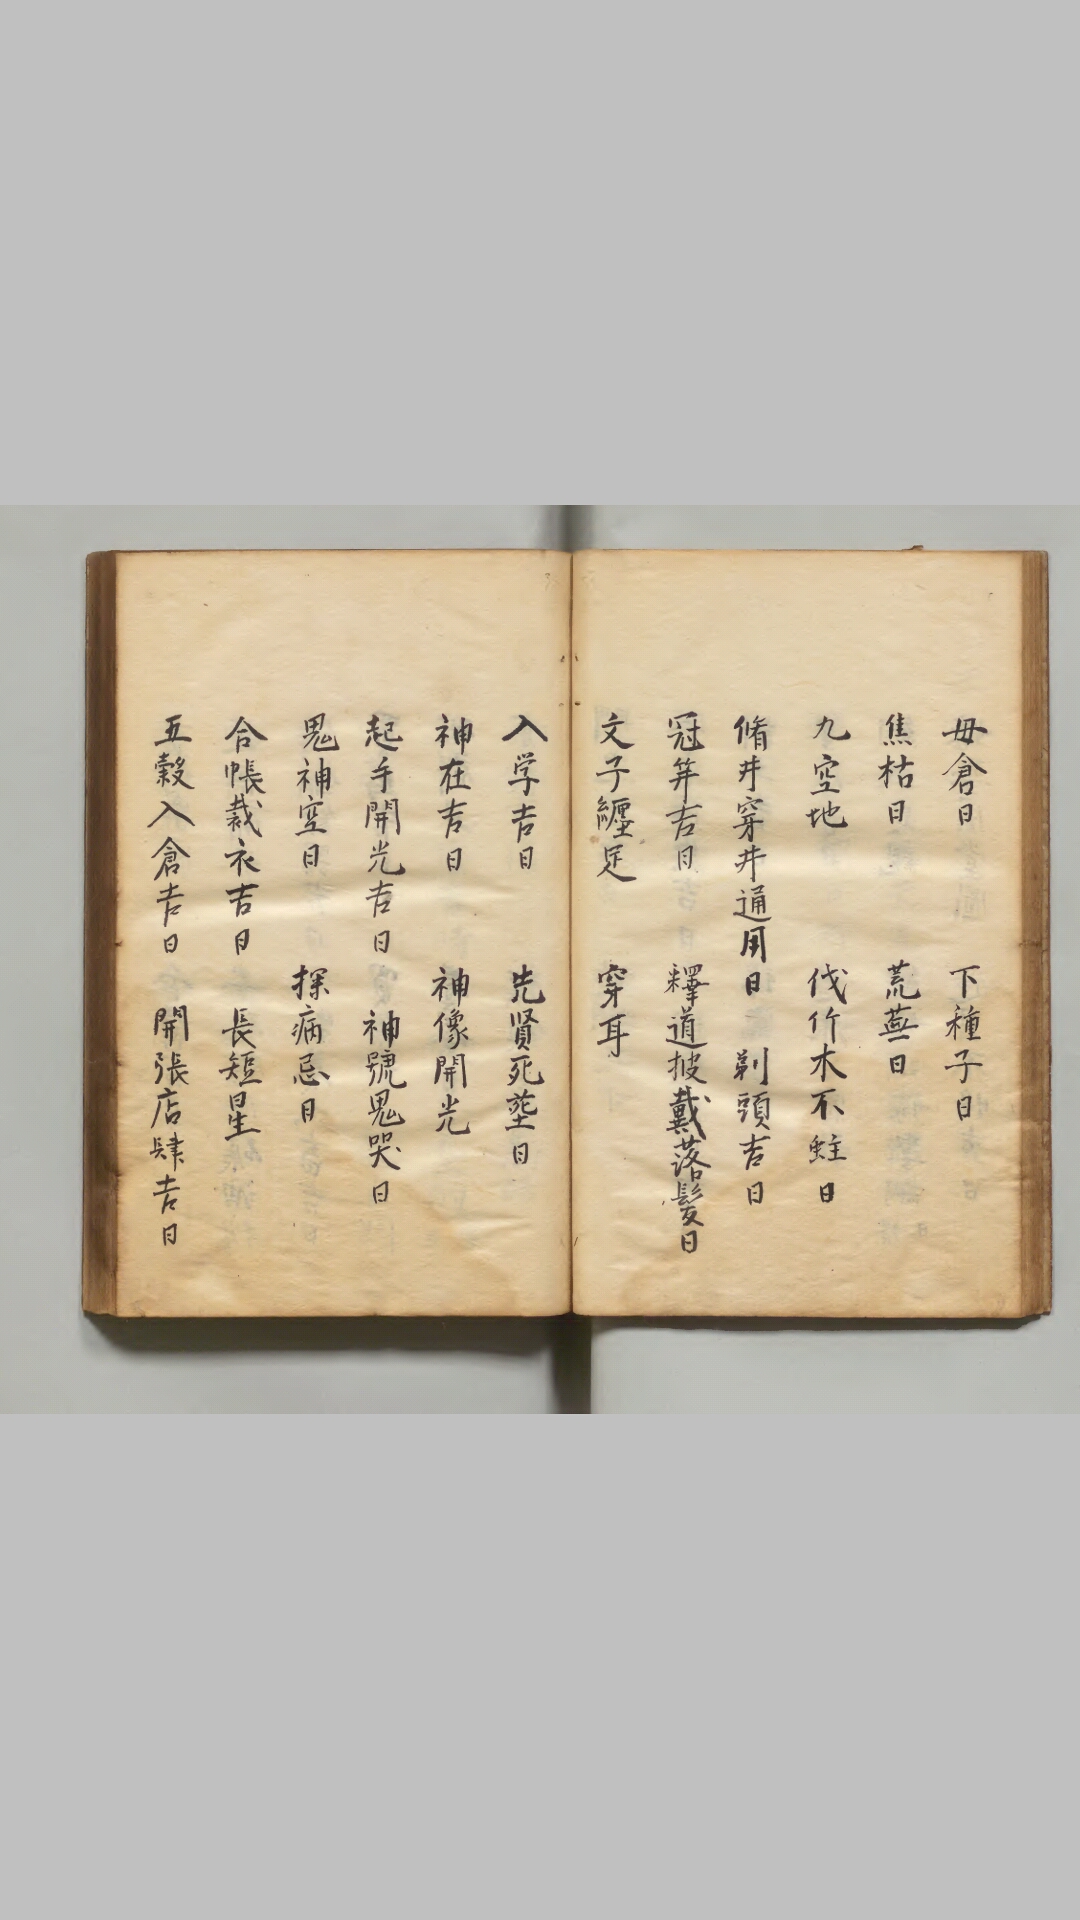 毋倉日 下種子日
焦枯日 荒蕪日
九空地 伐竹木不蛀日
脩井穿井通用日 剃頭吉日
冠笄吉日 釋道披戴落髮日
文子纏足 穿耳
入学吉日 先賢死塟日
神在吉日 神像開光
起手開光吉日 神號鬼哭日
鬼神空日 探病忌日
合帳裁衣吉日 長短星
五穀入倉吉日 開張店肆吉日